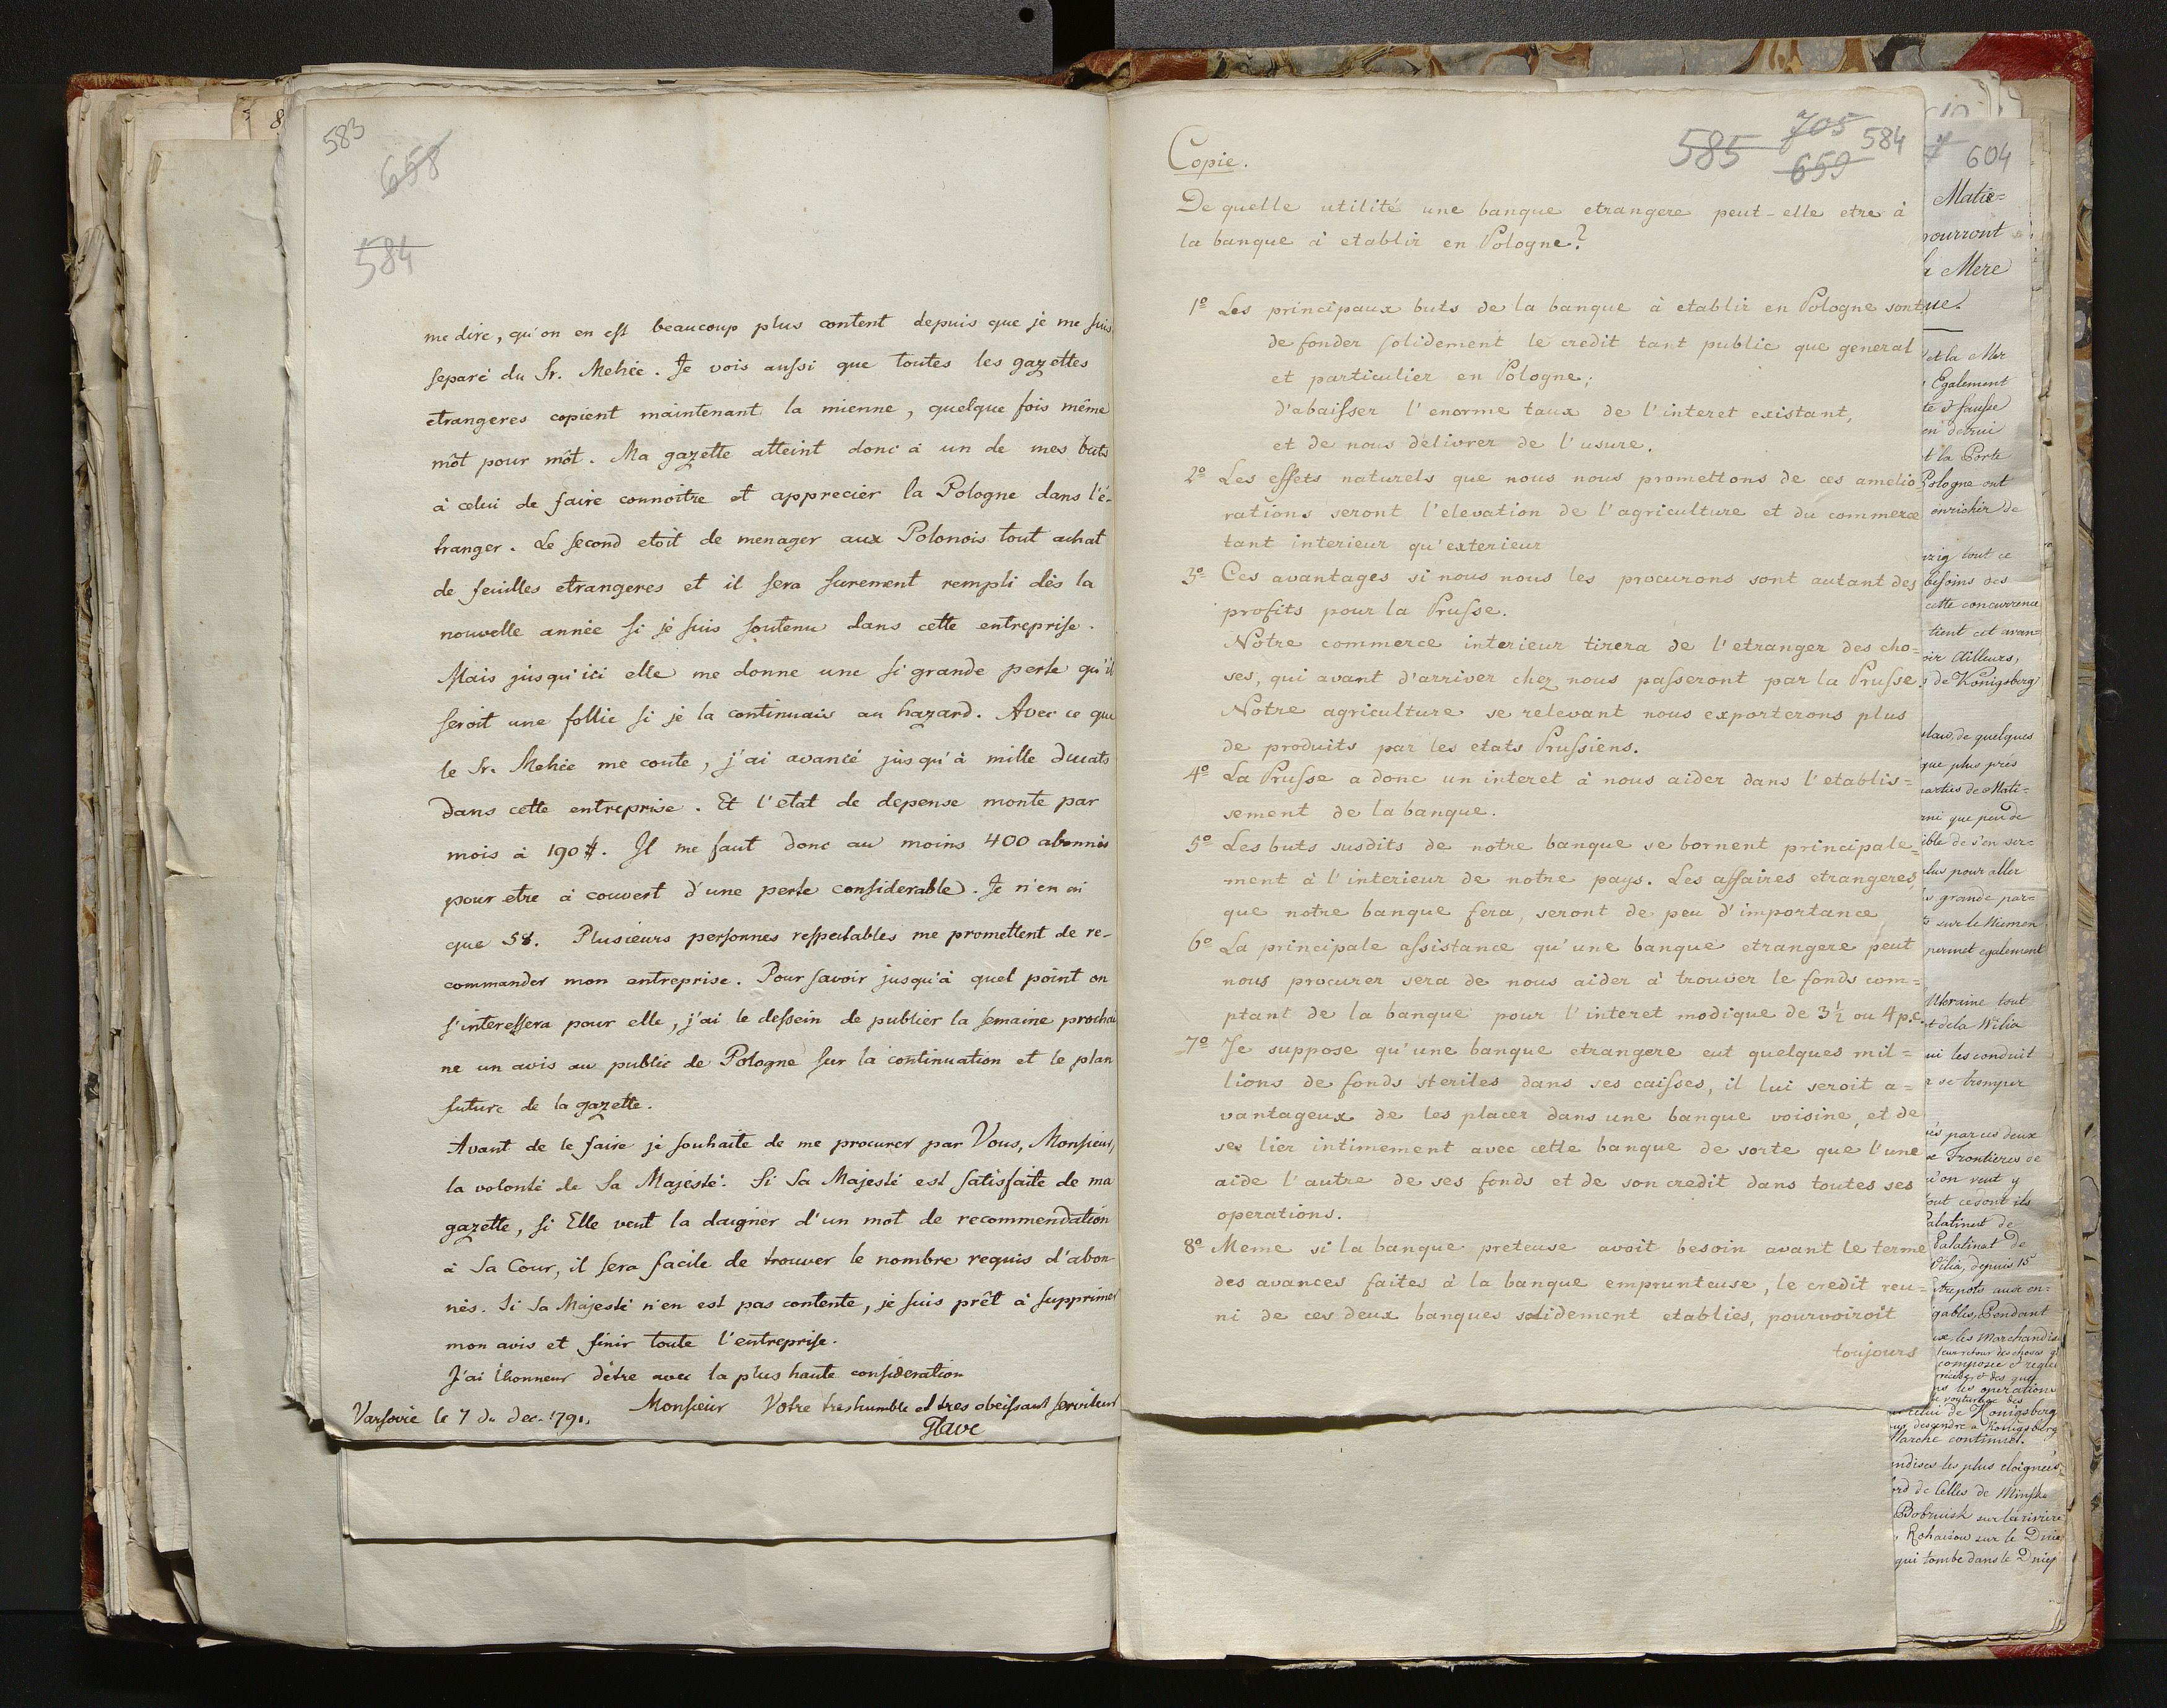 583
658
584
me dire, qu'on en est beaucoup plus content depuis que je me suis
separé du Sr. Mehée. Je vois aussi que toutes les gazettes
etrangeres copient maintenant la mienne, quelque fois même
môt pour môt. Ma gazette atteint donc à un de mes buts
à celui de faire connoitre et apprecier la Pologne dans l'é-
tranger. Le second etoit de menager aux Polonois tout achat
de feuilles etrangeres et il sera surement rempli dès la
nouvelle année si je suis soutenu dans cette entreprise.
Mais jusqu'ici elle me donne une si grande perte qu'il
seroit une follie si je la continuais au hazard. Avec ce que
le Sr. Mehée me coute, j'ai avancé jusqu'à mille ducats
dans cette entreprise. Et l'etat de depense monte par
mois à 190 #. Il me faut donc au moins 400 abonnés
pour etre à couvert d'une perte considerable. Je n'en ai
que 58. Plusieurs personnes respectables me promettent de re-
commander mon entreprise. Pour savoir jusqu'à quel point on
s'interessera pour elle, j'ai le dessein de publier la semaine prochai
ne un avis au public de Pologne sur la continuation et le plan
future de la gazette.
Avant de le faire je souhaite de me procurer par Vous, Monsieur,
la volonté de Sa Majesté. Si Sa Majesté est satisfaite de ma
gazette, si Elle veut la daigner d'un mot de recommendation
à Sa Cour, il sera facile de trouver le nombre requis d'abon
nés. Si Sa Majesté n'en est pas contente, je suis prêt à supprimer
mon avis et finir toute l'entreprise.
J'ai l'honneur d'être avec la plus haute consideration
Monsieur Votre tres humble et tres obeissant serviteur
Varsovie le 7 du Dec. 1791.
Glave
585 705 584
659
Copie.
De quelle utilité une banque etrangere peut-elle etre à
la banque à etablir en Pologne?
1º Les principaux buts de la banque à etablir en Pologne sont
de fonder solidement le credit tant public que general
et particulier en Pologne;
d'abaisser l'enorme taux de l'interet existant,
et de nous délivrer de l'usure.
2º Les effets naturels que nous nous promettons de ces amelio
rations seront l'elevation de l'agriculture et du commerce
tant interieur qu'exterieur
3º Ces avantages si nous nous les procurons sont autant des
profits pour la Prusse.
Notre commerce interieur tirera de l'etranger des cho=
ses, qui avant d'arriver chez nous passeront par la Prusse.
Notre agriculture se relevant nous exporterons plus
de produits par les etats Prussiens.
4º La Prusse a donc un interet à nous aider dans l'etablis=
sement de la banque.
5º Les buts susdits de notre banque se bornent principale=
ment à l'interieur de notre pays. Les affaires etrangeres,
que notre banque fera, seront de peu d'importance
6º La principale assistance qu'une banque etrangere peut
nous procurer sera de nous aider à trouver le fonds com=
ptant de la banque pour l'interet modique de 3½ ou 4 p.c.
7º Je suppose qu'une banque etrangere eut quelques mil=
lions de fonds steriles dans ses caisses, il lui seroit a=
vantageux de les placer dans une banque voisine, et de
se lier intimement avec cette banque de sorte que l'une
aide l'autre de ses fonds et de son credit dans toutes ses
operations.
8º Meme si la banque preteuse avoit besoin avant le terme
des avances faites à la banque emprunteuse, le credit reu=
ni de ces deux banques solidement etablies, pourvoiroit
toujours
604
Matie=
pourront
la Mere
ue.
et la Mer
Egalement
te & fausse
et la Porte
Pologne ont
enrichir de
tout ce
besoins des
cette concurrence
tient cet avan=
oir ailleurs,
de Königsberg
de quelques
que plus près
parties de Mati=
que peu de
ible de s'en ser=
plus pour aller
grande par=
sur le Niemen
permet egalement
Ukraine tout
et de la Wilia
qui les conduit
se tromper
par ces deux
Frontieres de
qu'on veut y
tout ce dont ils
Palatinat de
Palatinat de
Vilia, depuis 15
Entrepots aux en=
gables, Pendant
les Marchandise
leur retour des choses
composée & reglée
les operations
celui de Königsberg
descendre a Königsberg
Marche continuel.
andises les plus eloignées
ord de celles de Minsk
Bobruisk sur la riviere
Rohaczow sur le Dnie
qui tombe dans le Dniep